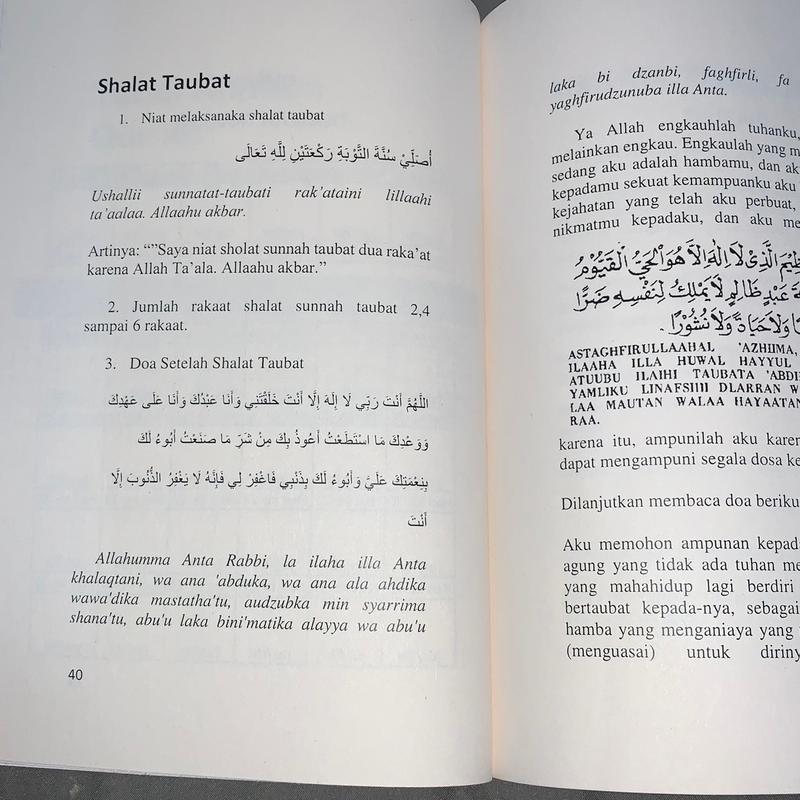 Shalat Taubat
1. Niat melaksanaka shalat taubat
أُصَلِّيْ سُنَّةَ التَّوْبَةِ رَكْعَتَيْنِ لِلَّهِ تَعَالَى
Ushallii sunnatat-taubati rak'ataini lillaahi
ta'aalaa. Allaahu akbar.
Artinya: “”Saya niat sholat sunnah taubat dua raka'at
karena Allah Ta'ala. Allaahu akbar.”
2. Jumlah rakaat shalat sunnah taubat 2,4
sampai 6 rakaat.
3. Doa Setelah Shalat Taubat
اللَّهُمَّ أَنْتَ رَبِّي لَا إِلَهَ إِلَّا أَنْتَ خَلَقْتَنِي وَأَنَا عَبْدُكَ وَأَنَا عَلَى عَهْدِكَ
وَوَعْدِكَ مَا اسْتَطَعْتُ أَعُوذُ بِكَ مِنْ شَرِّ مَا صَنَعْتُ أَبُوءُ لَكَ
بِنِعْمَتِكَ عَلَيَّ وَأَبُوءُ لَكَ بِذَنْبِي فَاغْفِرْ لِي فَإِنَّهُ لَا يَغْفِرُ الذُّنُوبَ إِلَّا
أَنْتَ
Allahumma Anta Rabbi, la ilaha illa Anta
khalaqtani, wa ana 'abduka, wa ana ala ahdika
wawa'dika mastatha'tu, audzubka min syarrima
shana'tu, abu'u laka bini'matika alayya wa abu'u
40
laka bi dzanbi, faghfirli, fa
yaghfirudzunuba illa Anta.
Ya Allah engkauhlah tuhanku,
melainkan engkau. Engkaulah yang m
sedang aku adalah hambamu, dan ak
kepadamu sekuat kemampuanku aku
kejahatan yang telah aku perbuat,
nikmatmu kepadaku, dan aku me
ظِيْمَ الَّذِيْ لَا اِلٰهَ اِلَّا هُوَ الْحَيُّ الْقَيُّوْمُ
ةَ عَبْدٍ ظَالِمٍ لَا يَمْلِكُ لِنَفْسِهٖ ضَرًّا
ا وَلَا حَيَاةً وَلَا نُشُوْرًا.
ASTAGHFIRULLAAHAL 'AZHIIMA,
ILAAHA ILLA HUWAL HAYYUL
ATUUBU ILAIHI TAUBATA 'ABDI
YAMLIKU LINAFSIHI DLARRAN W
LAA MAUTAN WALAA HAYAATAN
RAA.
karena itu, ampunilah aku karen
dapat mengampuni segala dosa ke
Dilanjutkan membaca doa beriku
Aku memohon ampunan kepada
agung yang tidak ada tuhan me
yang mahahidup lagi berdiri
bertaubat kepada-nya, sebagai
hamba yang menganiaya yang
(menguasai) untuk diriny